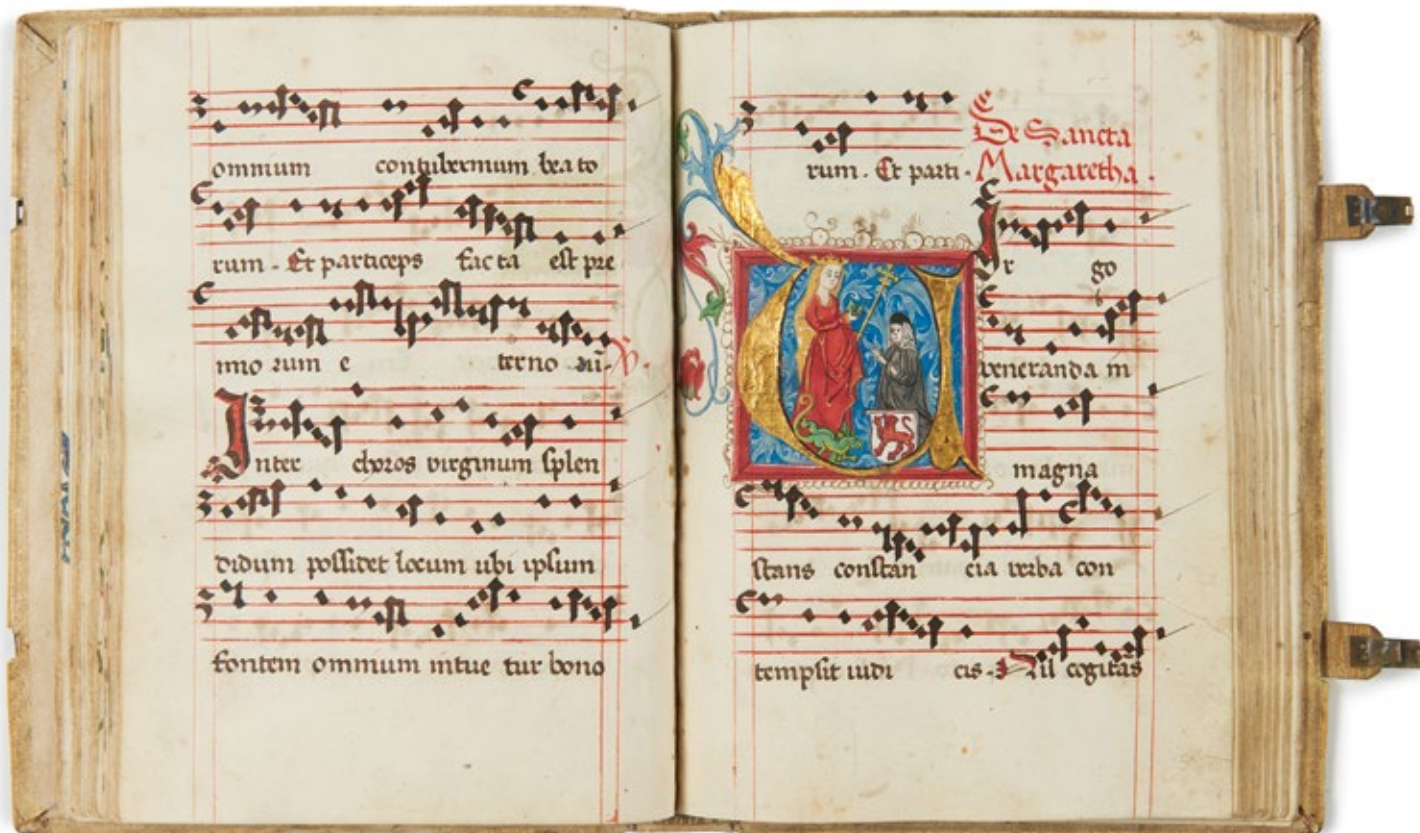 omnium contubernium beato
rum. Et particeps facta est pre
mio rum e terno rū. V.
Inter choros virginum splen
didum possidet locum ubi ipsum
fontem omnium intue tur bono
rum. Et parti.
De Sancta
Margaretha.
Vir go
veneranda in
magna
stans constan cia verba con
tempsit iudi cis. Nil cogitās